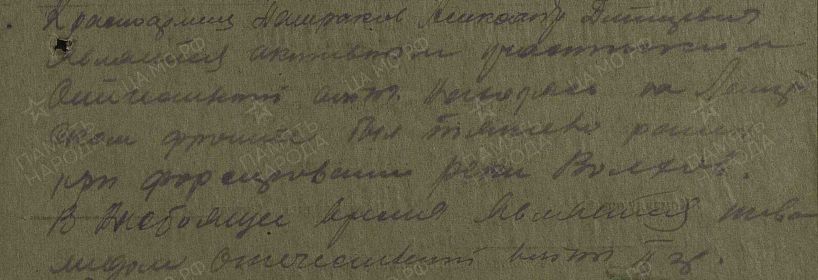 Красноармеец Александр
является активным участником
Отечественной войны. на Ленинград
ском фронте был тяжело ранен
при форсировании реки Волхов.
В настоящее время является инва
лидом отечественной войны II гр.